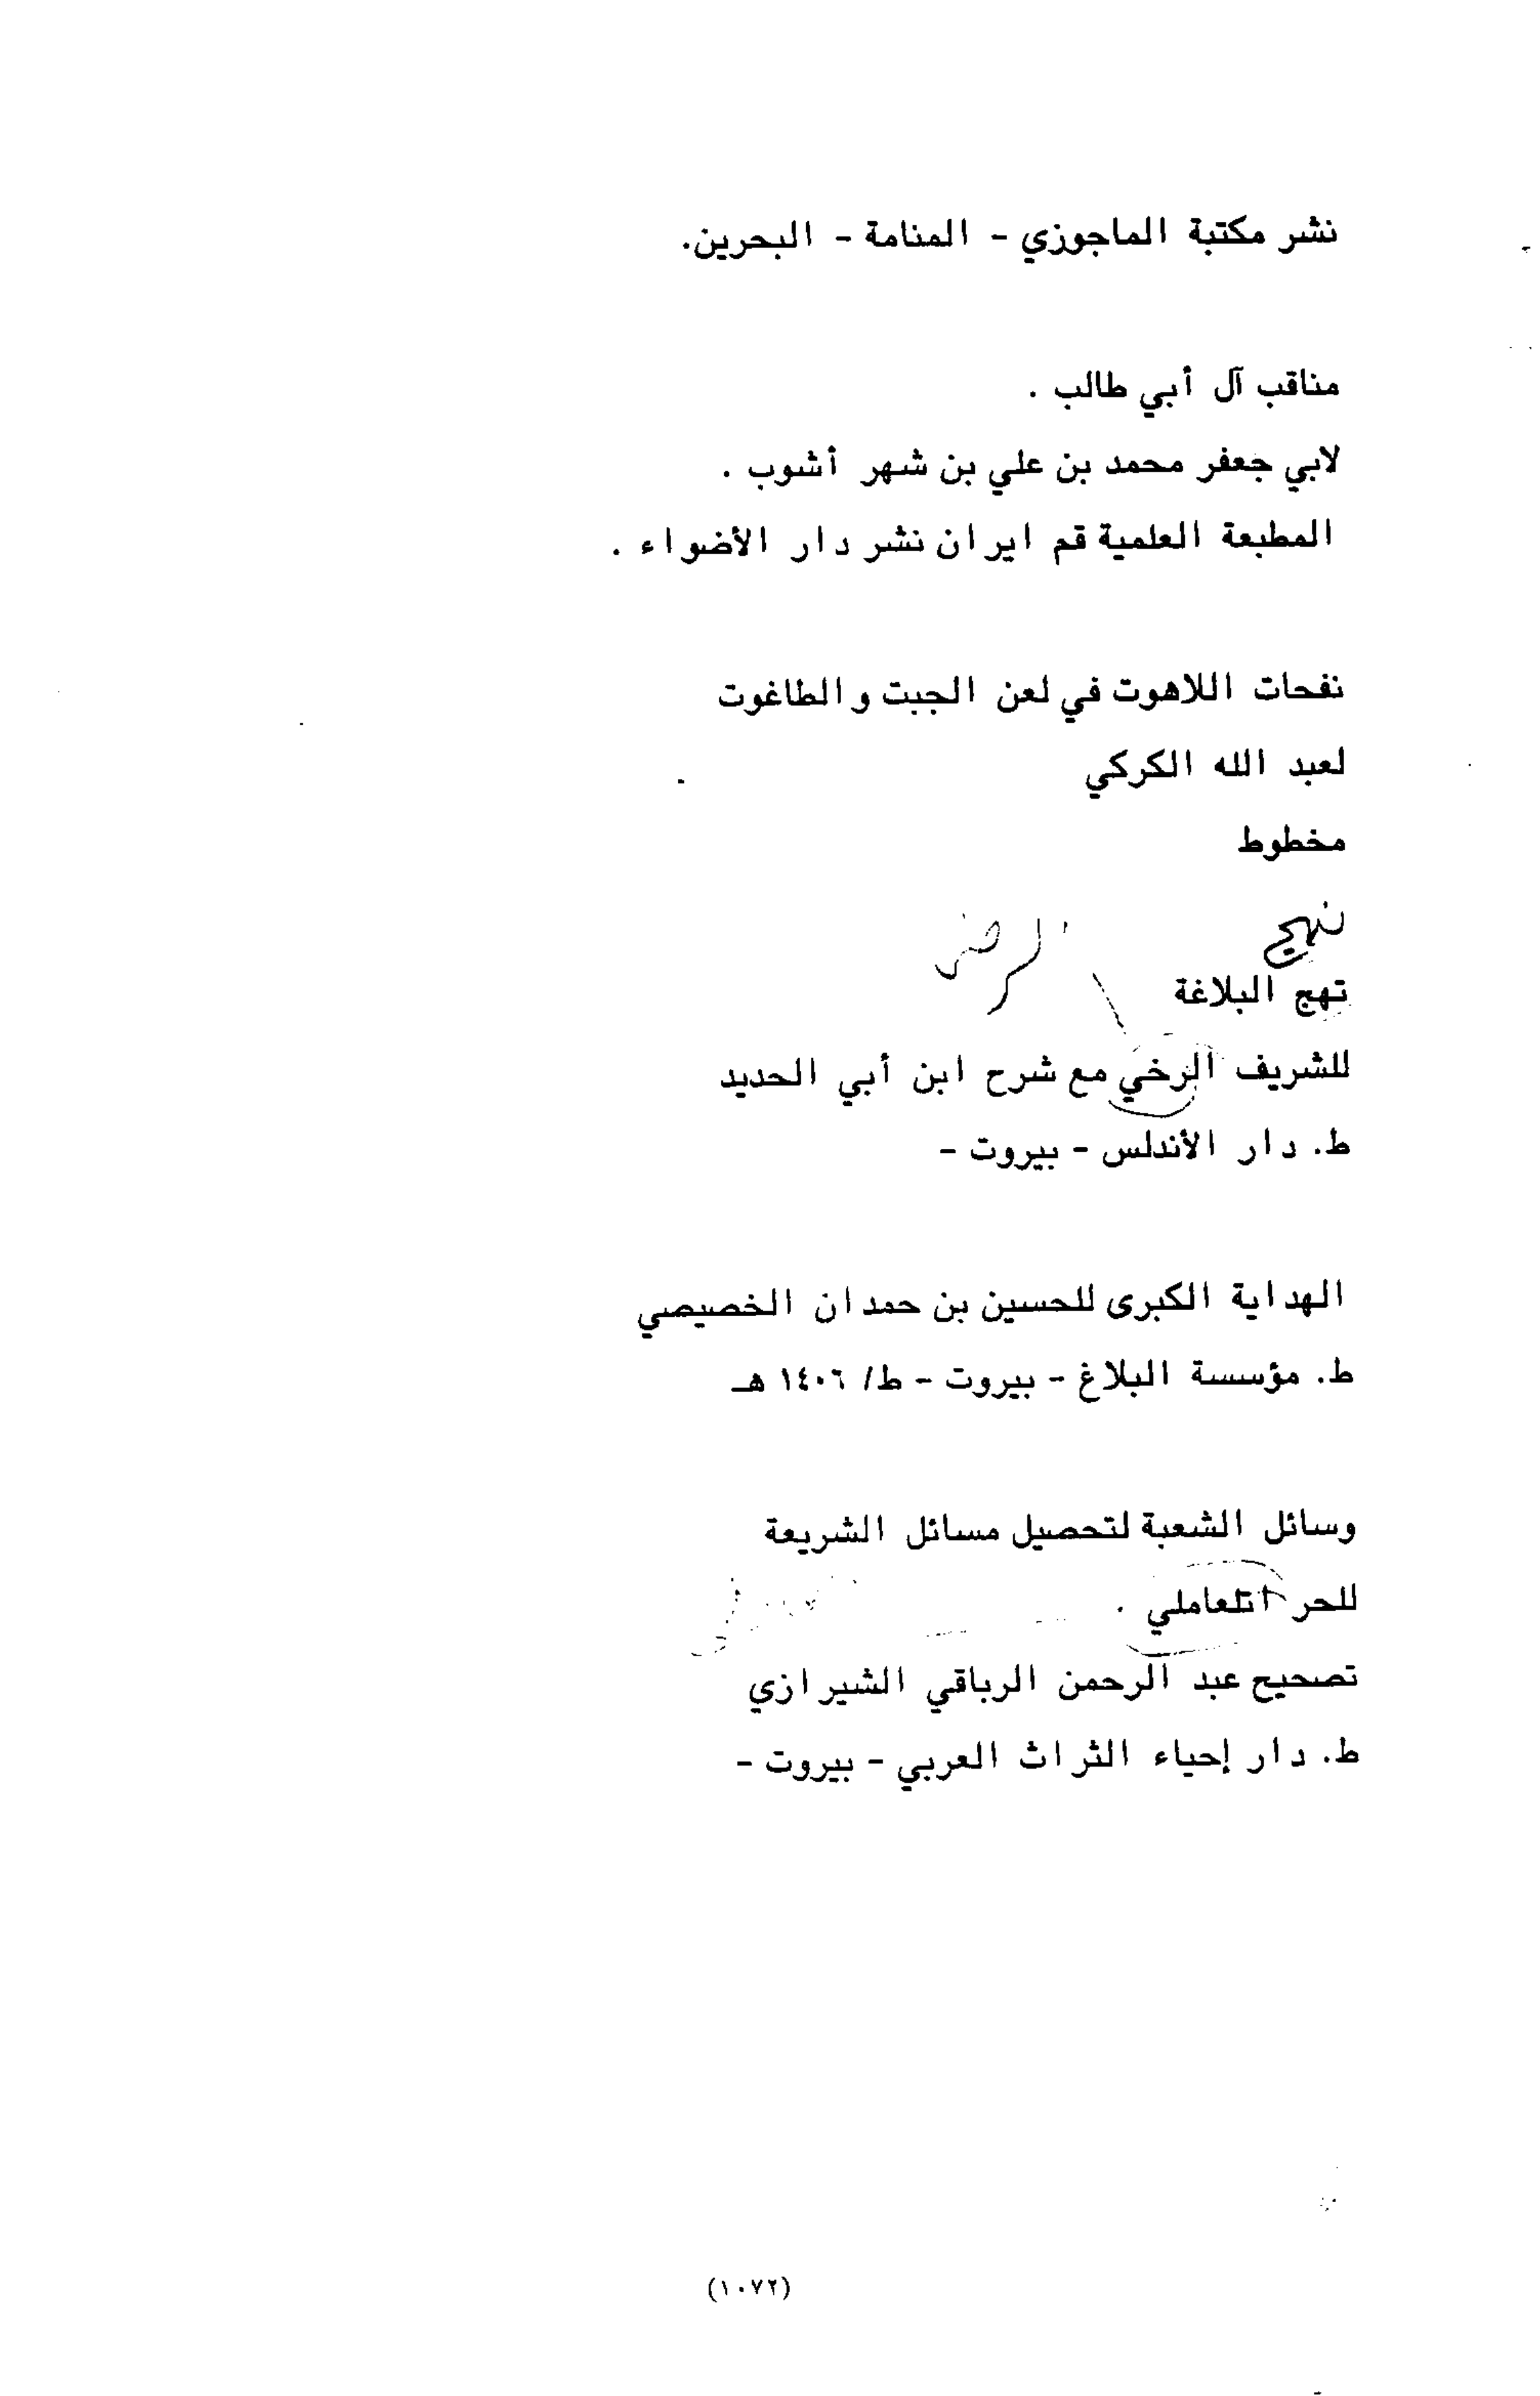 نشر مكتبة الماجوزي - المنامة - البحرين.
مناقب آل أبي طالب .
لابي جعفر محمد بن علي بن شهر أشوب .
المطبعة العلمية قم ايران نشر دار الأضواء .
نفحات اللاهوت في لعن الجبت والطاغوت
لعبد الله الكركي
مخطوط
نهج
الرضي
تهج البلاغة
للشريف الرخي مع شرح ابن أبي الحديد
ط. دار الأندلس - بيروت -
الهداية الكبرى للحسين بن حمدان الخصيصي
ط. مؤسسة البلاغ - بيروت - ط/ ١٤٠٦ هـ
وسائل الشعبة لتحصيل مسائل الشريعة
للحر العاملي .
تصحيح عبد الرحمن الرباقي الشيرازي
ط. دار إحياء الثراث العربي - بيروت -
(١٠٧٢)